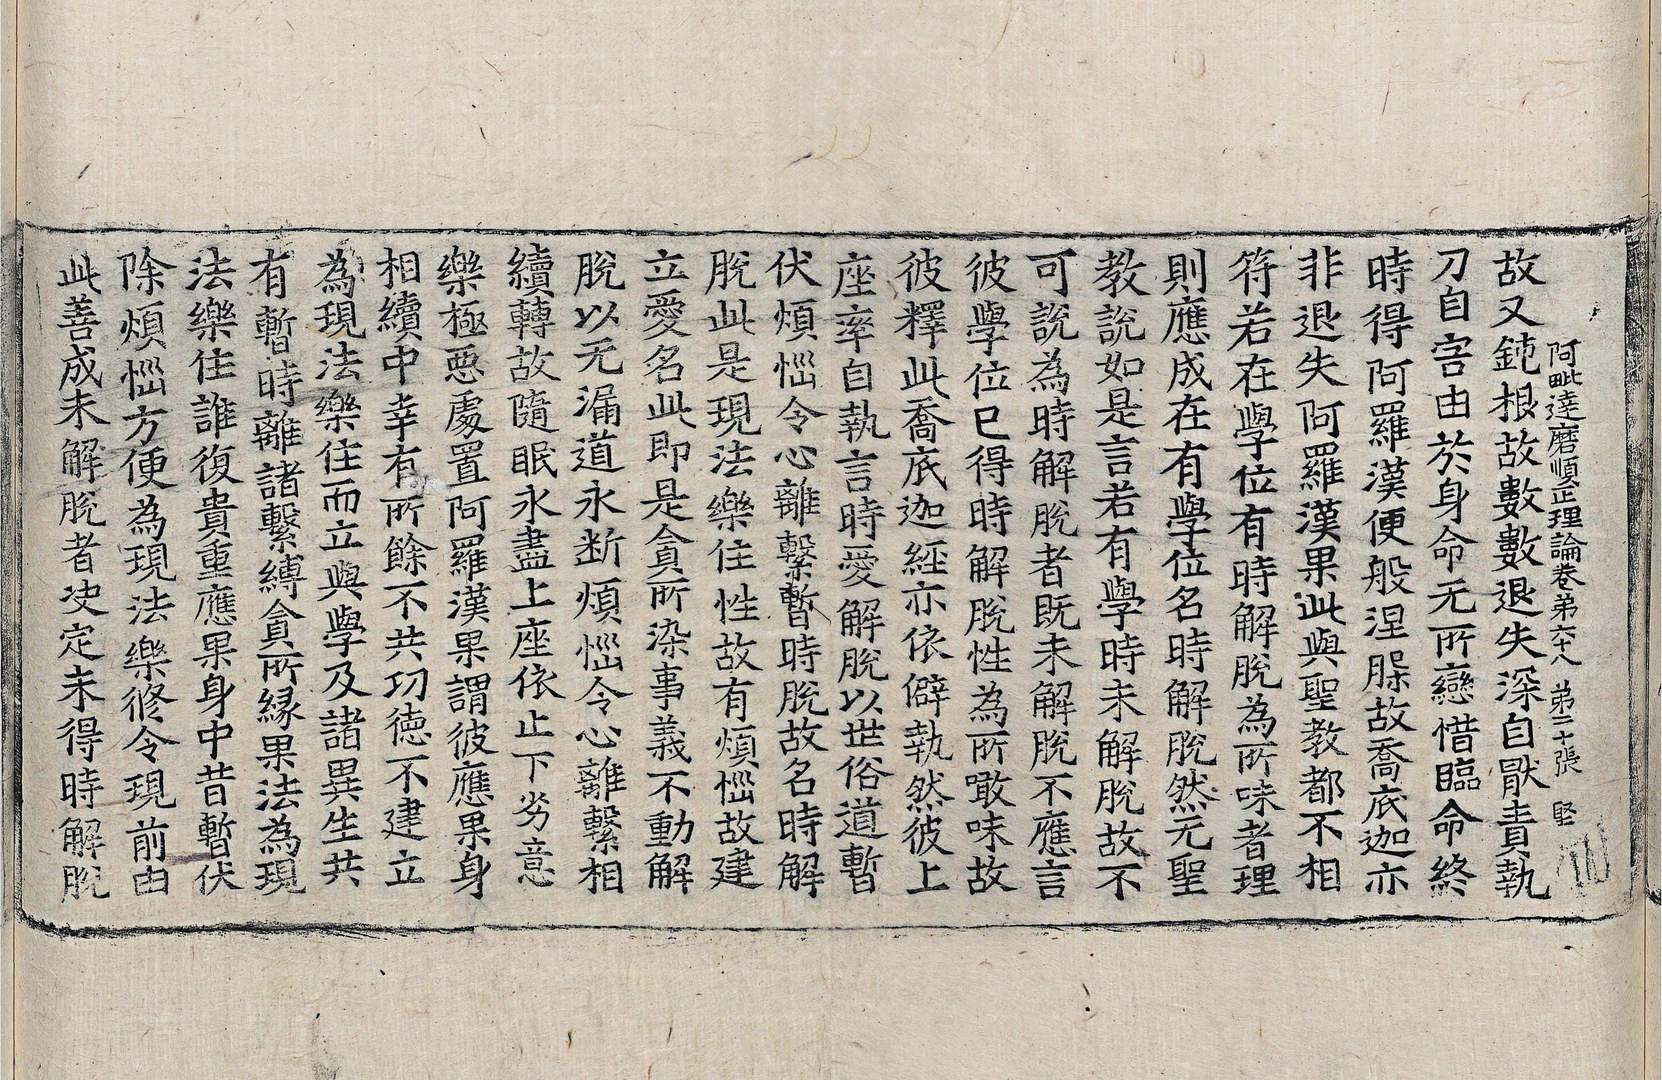 阿毗達磨順正理論卷第六十八 第二十張 堅
故又鈍根故數數退失深自猒責執
刀自害由於身命无所戀惜臨命終
時得阿羅漢便般涅脲故喬底迦亦
非退失阿羅漢果此與聖教都不相
符若在學位有時解脫為所味者理
則應成在有學位名時解脫然无聖
教說如是言若有學時未解脫故不
可說為時解脫者既未解脫不應言
彼學位已得時解脫性為所噉味故
彼釋此喬底迦經亦依僻執然彼上
座率自執言時愛解脫以世俗道暫
伏煩惱令心離繫暫時脫故名時解
脫此是現法樂住性故有煩惱故建
立愛名此即是貪所染事義不動解
脫以无漏道永断煩惱令心離繫相
續轉故隨眠永盡上座依止下劣意
樂極惡處置阿羅漢果謂彼應果身
相續中幸有所餘不共功德不建立
為現法樂住而立與學及諸異生共
有暫時離諸繫縛貪所緣果法為現
法樂住誰復貴重應果身中昔暫伏
除煩惱方便為現法樂修令現前由
此善成未解脫者决定未得時解脫